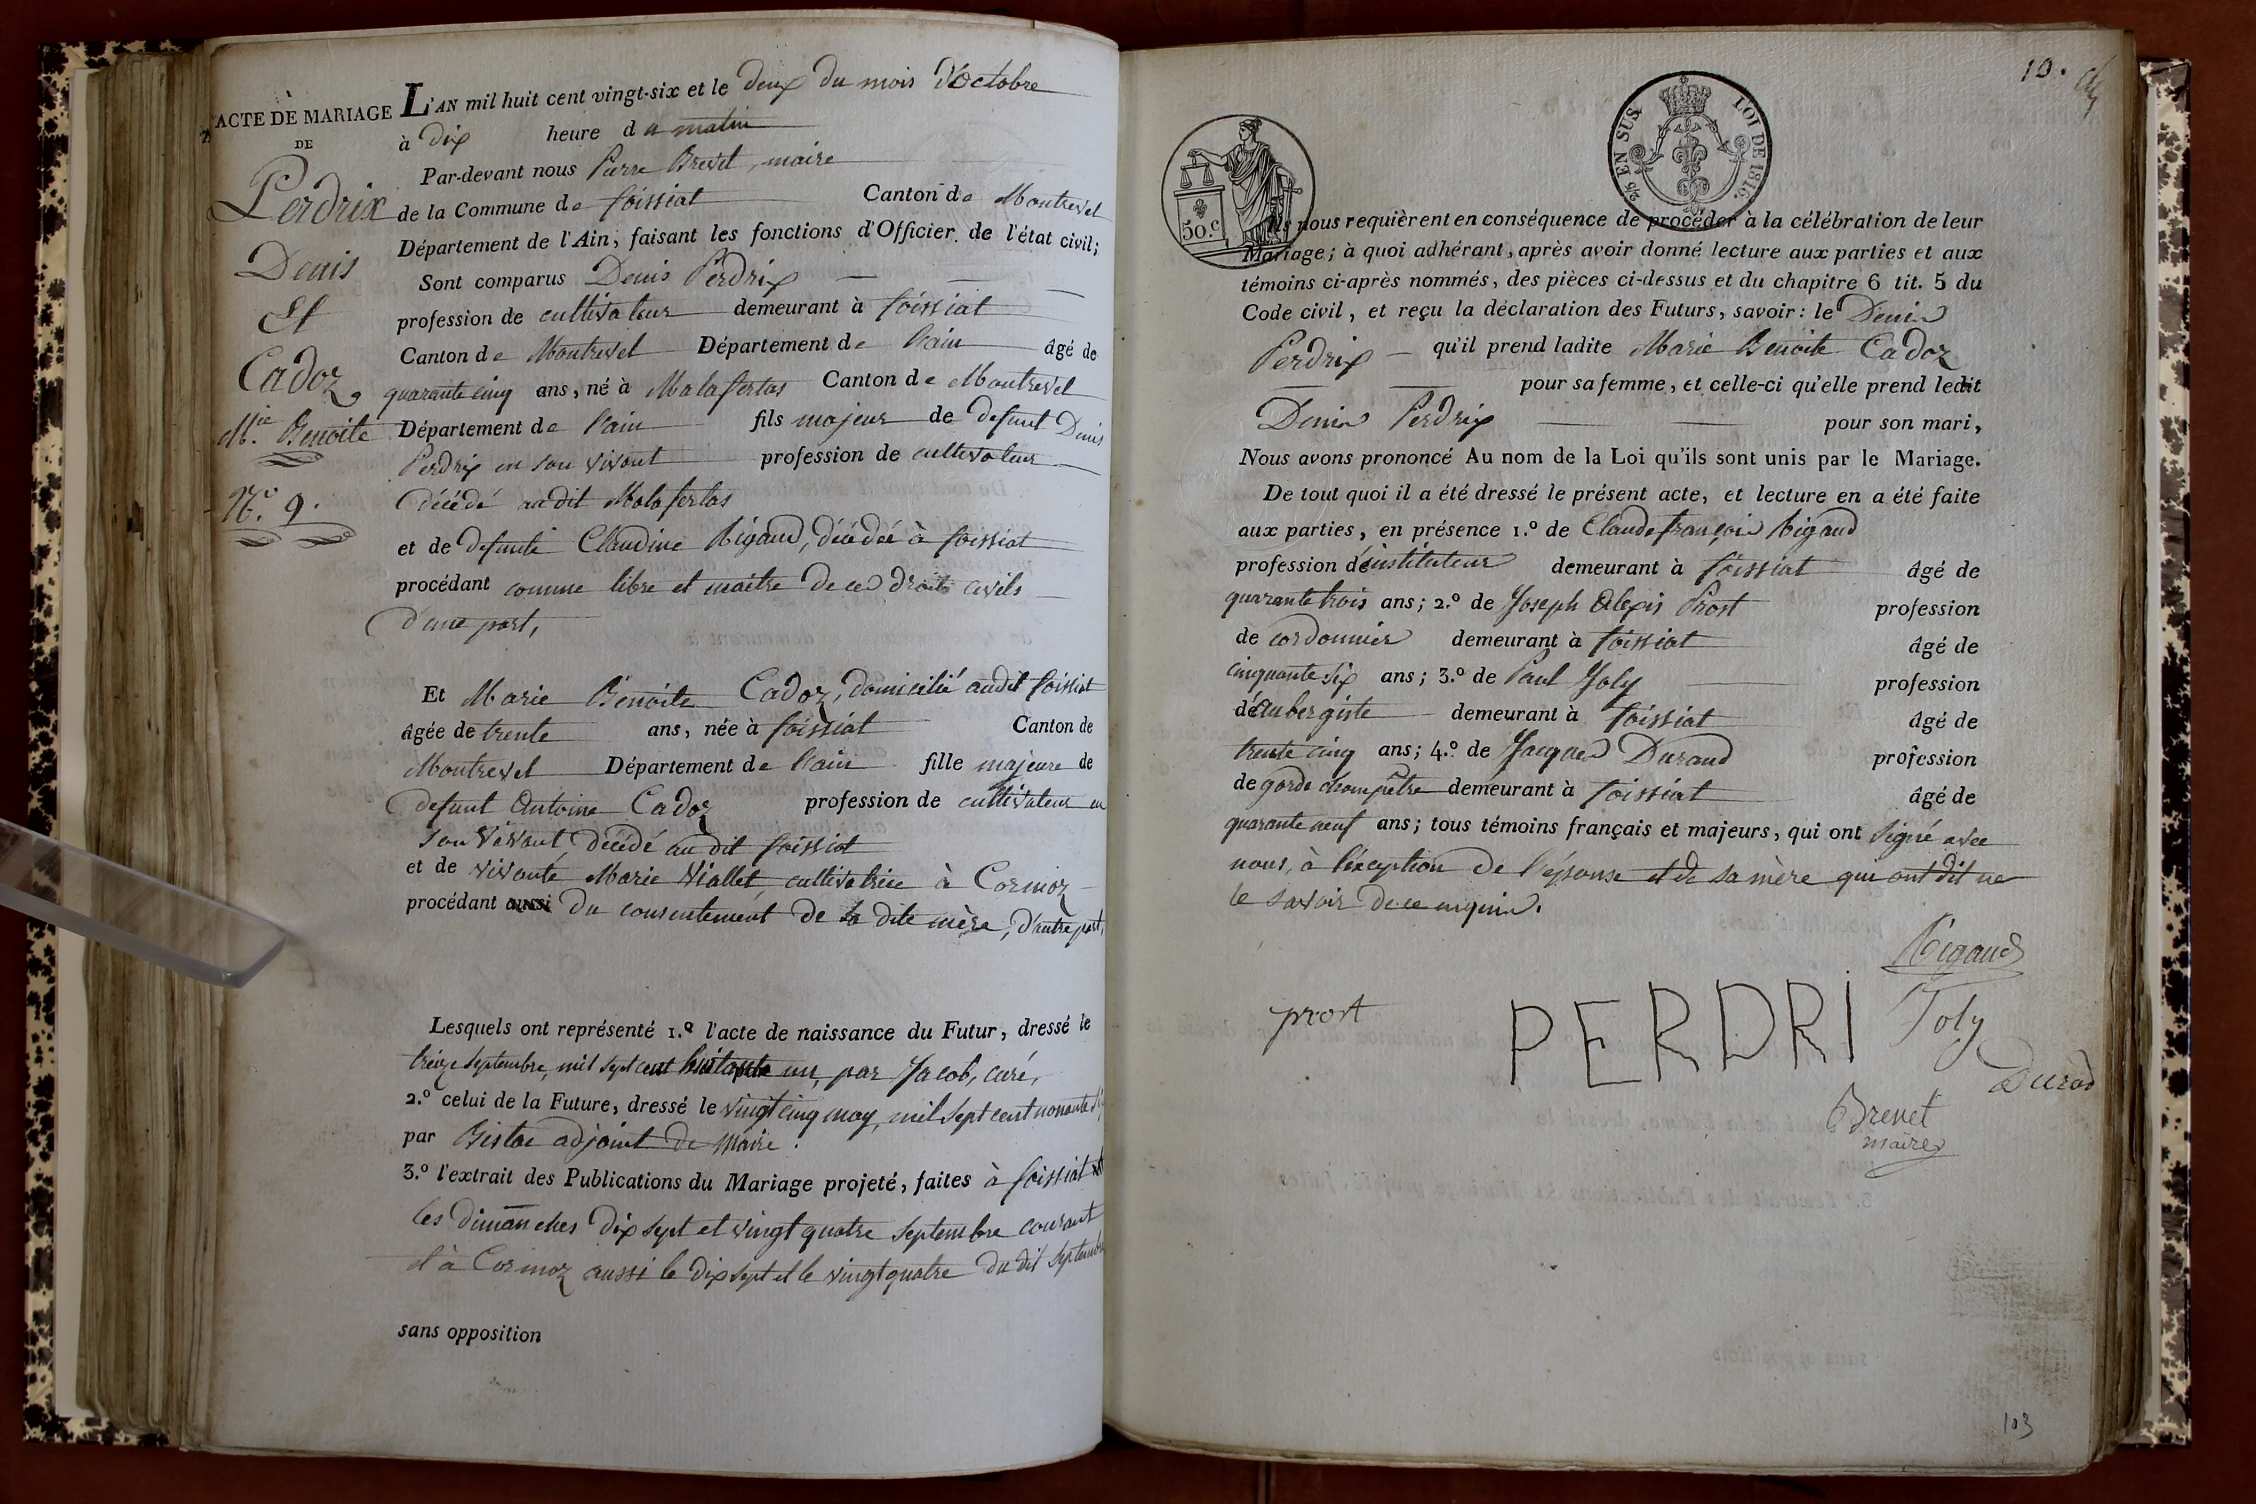 ACTE DE MARIAGE
DE
Perdrix
Denis
Et
Cadoz
M.ie Benoite
N.º 9.
L'AN mil huit cent vingt-six et le deux du mois d'octobre
à dix heure du matin
Par-devant nous Pierre Brevet, maire
de la Commune de foissiat Canton de Montrevel
Département de l'Ain, faisant les fonctions d'Officier de l'état civil;
Sont comparus Denis Perdrix
profession de cultivateur demeurant à foissiat
Canton de Montrevel Département de l'ain âgé de
quarante cinq ans, né à Malafertas Canton de Montrevel
Département de l'ain fils majeur de defunt Denis
Perdrix en son vivant profession de cultivateur
décédé audit Malafertas
et de defunte Claudine Rigaud, décédée à foissiat
procédant comme libre et maitre de ces droits civils
d'une part,
Et Marie Benoite Cadoz, domicilié audit foissiat
âgée de trente ans, née à foissiat Canton de
Montrevel Département de l'ain fille majeure de
defunt Antoine Cadoz profession de cultivateur en
son vivant, décédé au dit foissiat
et de vivante Marie Viallet, cultivatrice à Cormoz
procédant aussi du consentement de la dite mère, d'autre part,
Lesquels ont représenté 1.º l'acte de naissance du Futur, dressé le
treize septembre, mil sept cent huitante un, par Jacob, curé,
2.º celui de la Future, dressé le vingt cinq may, mil sept cent nonante
par adjoint de Maire.
3.º l'extrait des Publications du Mariage projeté, faites à foissiat
les dimanches dix sept et vingt quatre septembre courant
et à Cormoz aussi le dix sept et le vingt quatre du dit septembre
sans opposition
10.
2/5 EN SUS. LOI DE 1816.
50.c
Ils nous requièrent en conséquence de procéder à la célébration de leur
Mariage; à quoi adhérant, après avoir donné lecture aux parties et aux
témoins ci-après nommés, des pièces ci-dessus et du chapitre 6 tit. 5 du
Code civil, et reçu la déclaration des Futurs, savoir: le Denis
Perdrix qu'il prend ladite Marie Benoite Cadoz
pour sa femme, et celle-ci qu'elle prend ledit
Denis Perdrix pour son mari,
Nous avons prononcé Au nom de la Loi qu'ils sont unis par le Mariage.
De tout quoi il a été dressé le présent acte, et lecture en a été faite
aux parties, en présence 1.º de Claude françois Rigaud
profession d'instituteur demeurant à foissiat âgé de
quarante trois ans; 2.º de Joseph Alexis Prost profession
de cordonnier demeurant à foissiat âgé de
cinquante six ans; 3.º de Paul Joly profession
d'aubergiste demeurant à foissiat âgé de
trente cinq ans; 4.º de Jacques Durand profession
de garde champêtre demeurant à foissiat âgé de
quarante neuf ans; tous témoins français et majeurs, qui ont signé avec
nous, à l'exception de l'épouse et de sa mère qui ont dit ne
le savoir de ce enquis.
Rigaud
prost PERDRI Joly
Durad
Brevet
maire
103